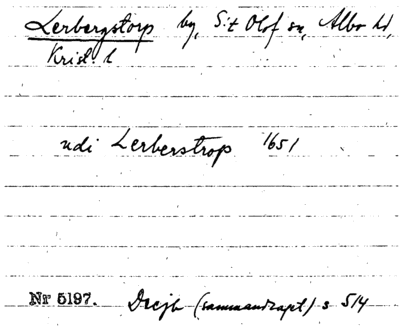 Lerbergstorp by, S:t Olof sn, Albo hd,
Krist. l
udi Lerberstrop 1651
Nr 5197. Dec jb (sammandraget) s 514